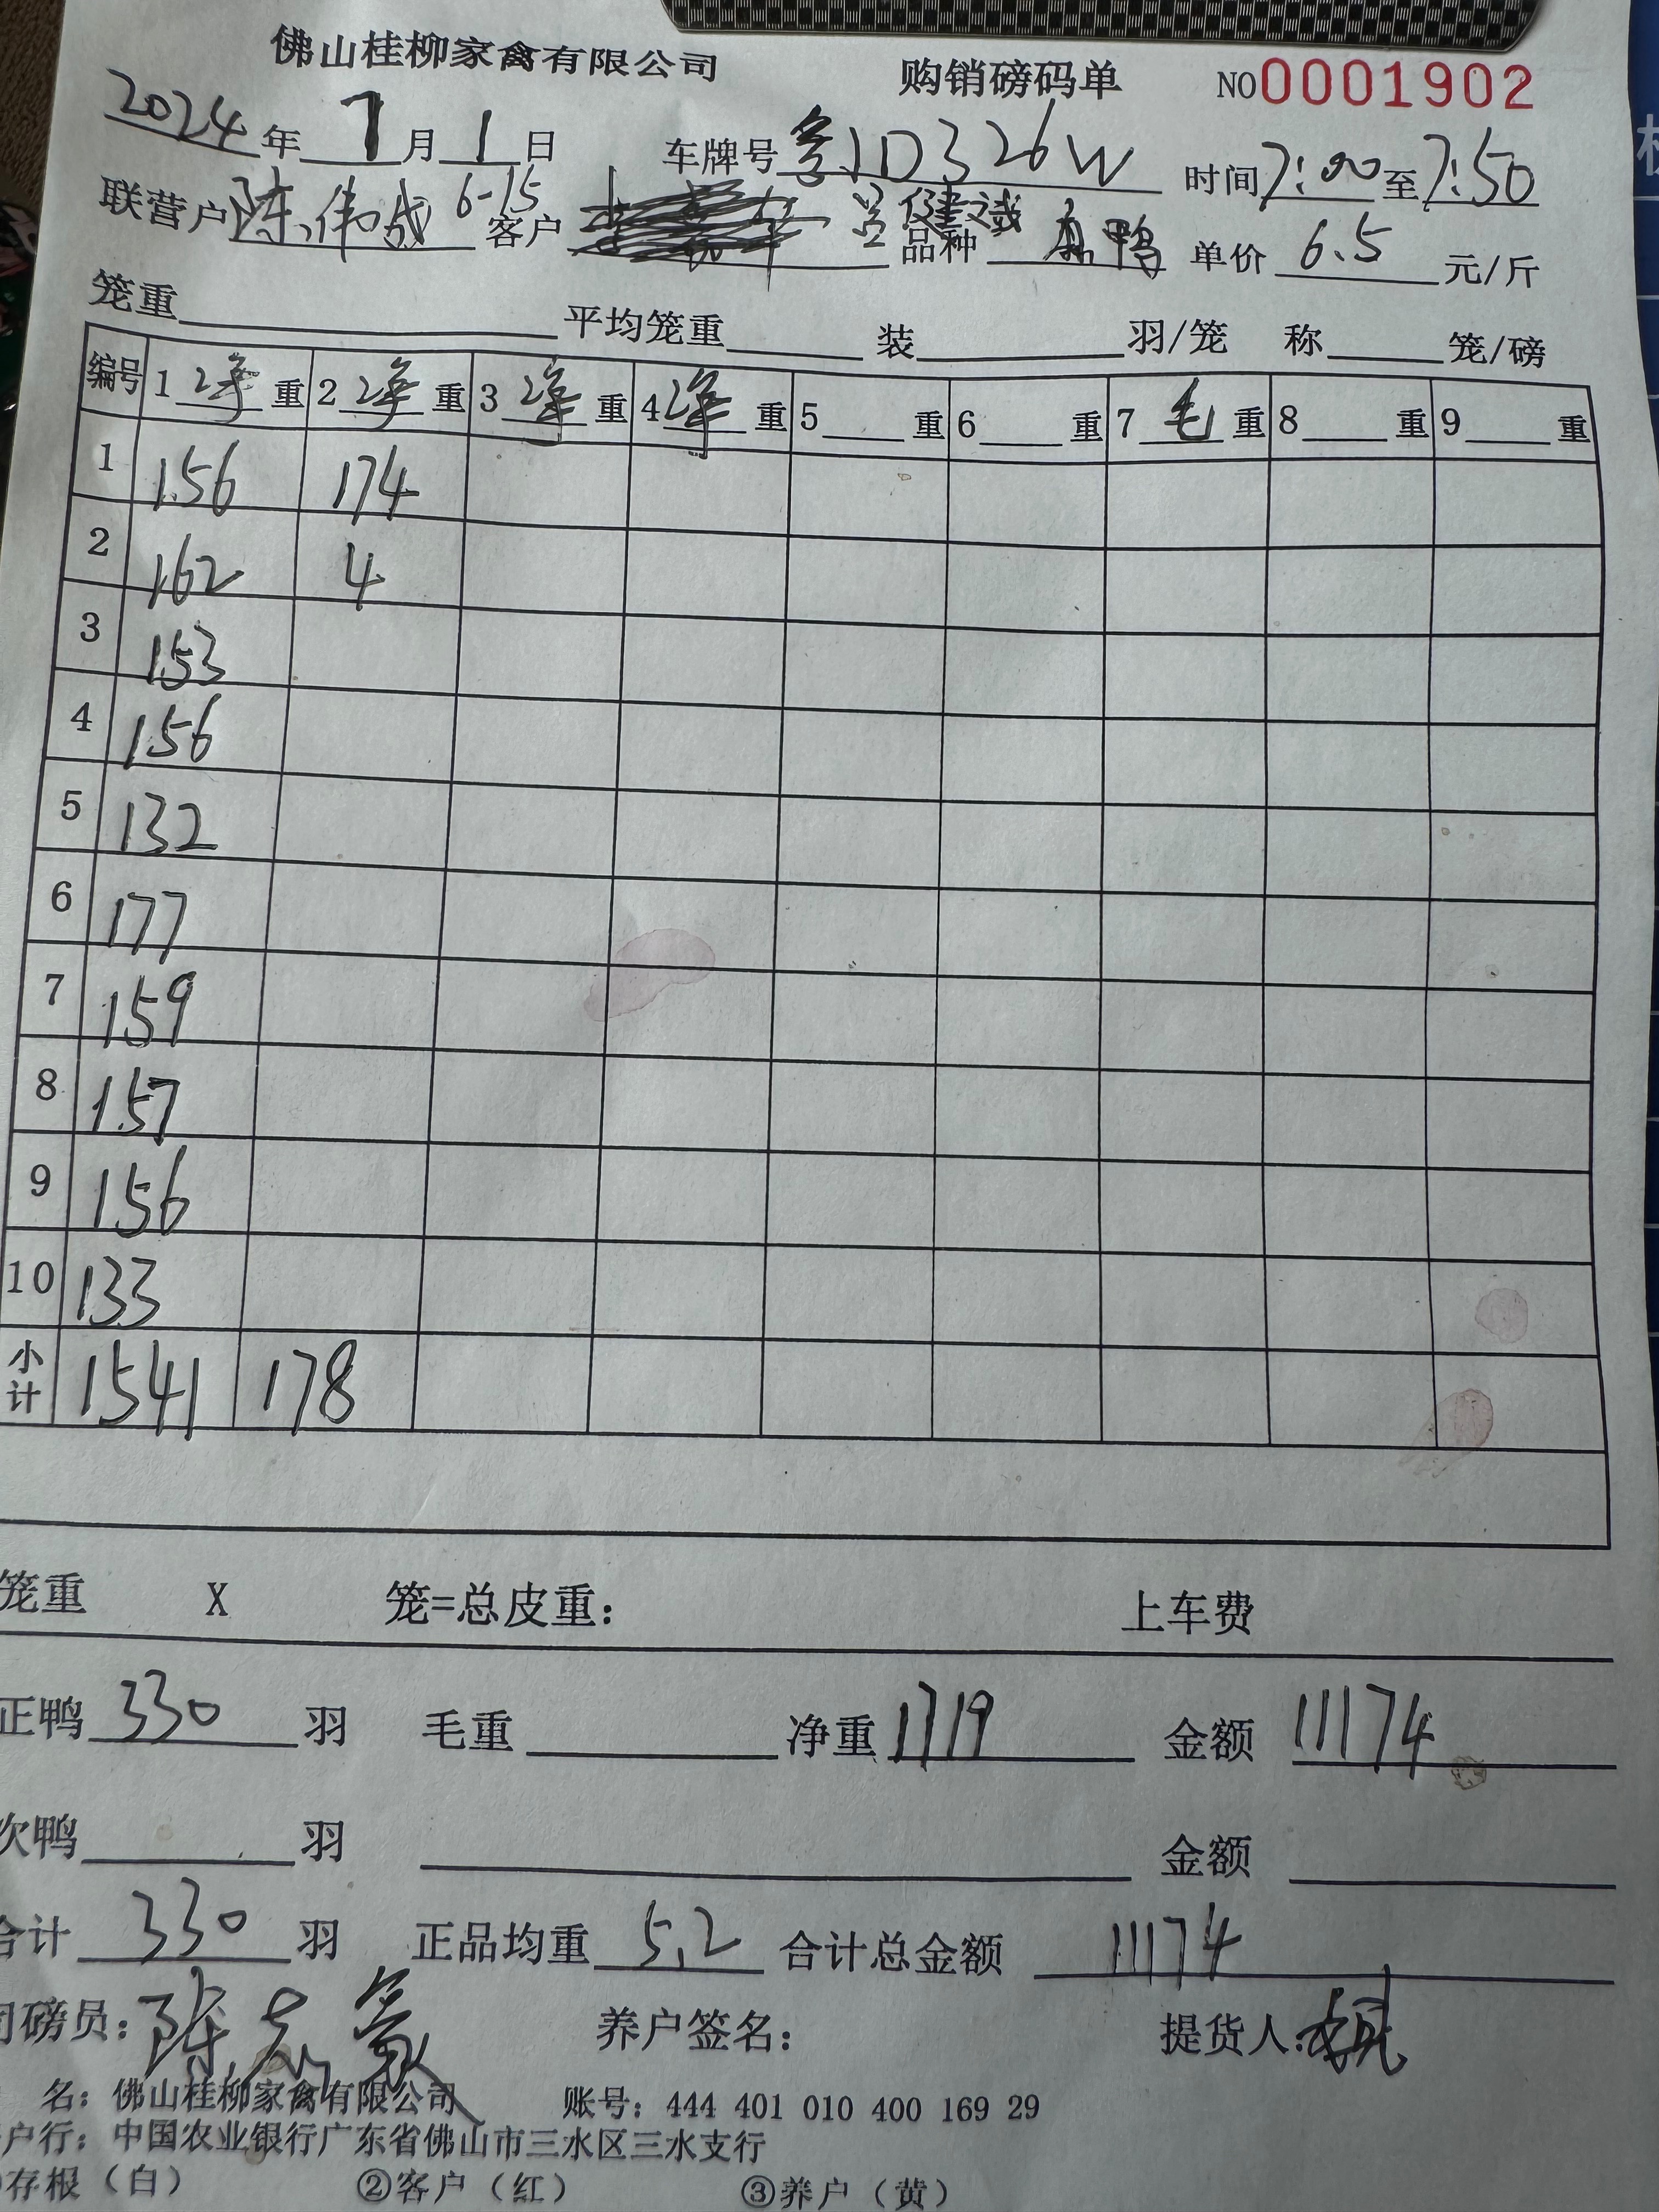 佛山桂柳家禽有限公司 购销磅码单 NO0001902
2024年7月1日 车牌号粤JD326W 时间7:00至7:50
联营户陈伟成 6-15 客户 品种 鸭 单价6.5元/斤
笼重 平均笼重 装 羽/笼 称 笼/磅
编号 1净重 2净重 3净重 4净重 5 重 6 重 7毛重 8 重 9 重
1 156 174
2 162 4
3 153
4 156
5 132
6 177
7 159
8 157
9 156
10 133
小计 1541 178
笼重 X 笼=总皮重： 上车费
正鸭330羽 毛重 净重1719 金额11174
次鸭 羽 金额
合计330羽 正品均重5.2 合计总金额11174
司磅员：陈 养户签名： 提货人：
名：佛山桂柳家禽有限公司 账号：444 401 010 400 169 29
户行：中国农业银行广东省佛山市三水区三水支行
存根（白） ②客户（红） ③养户（黄）